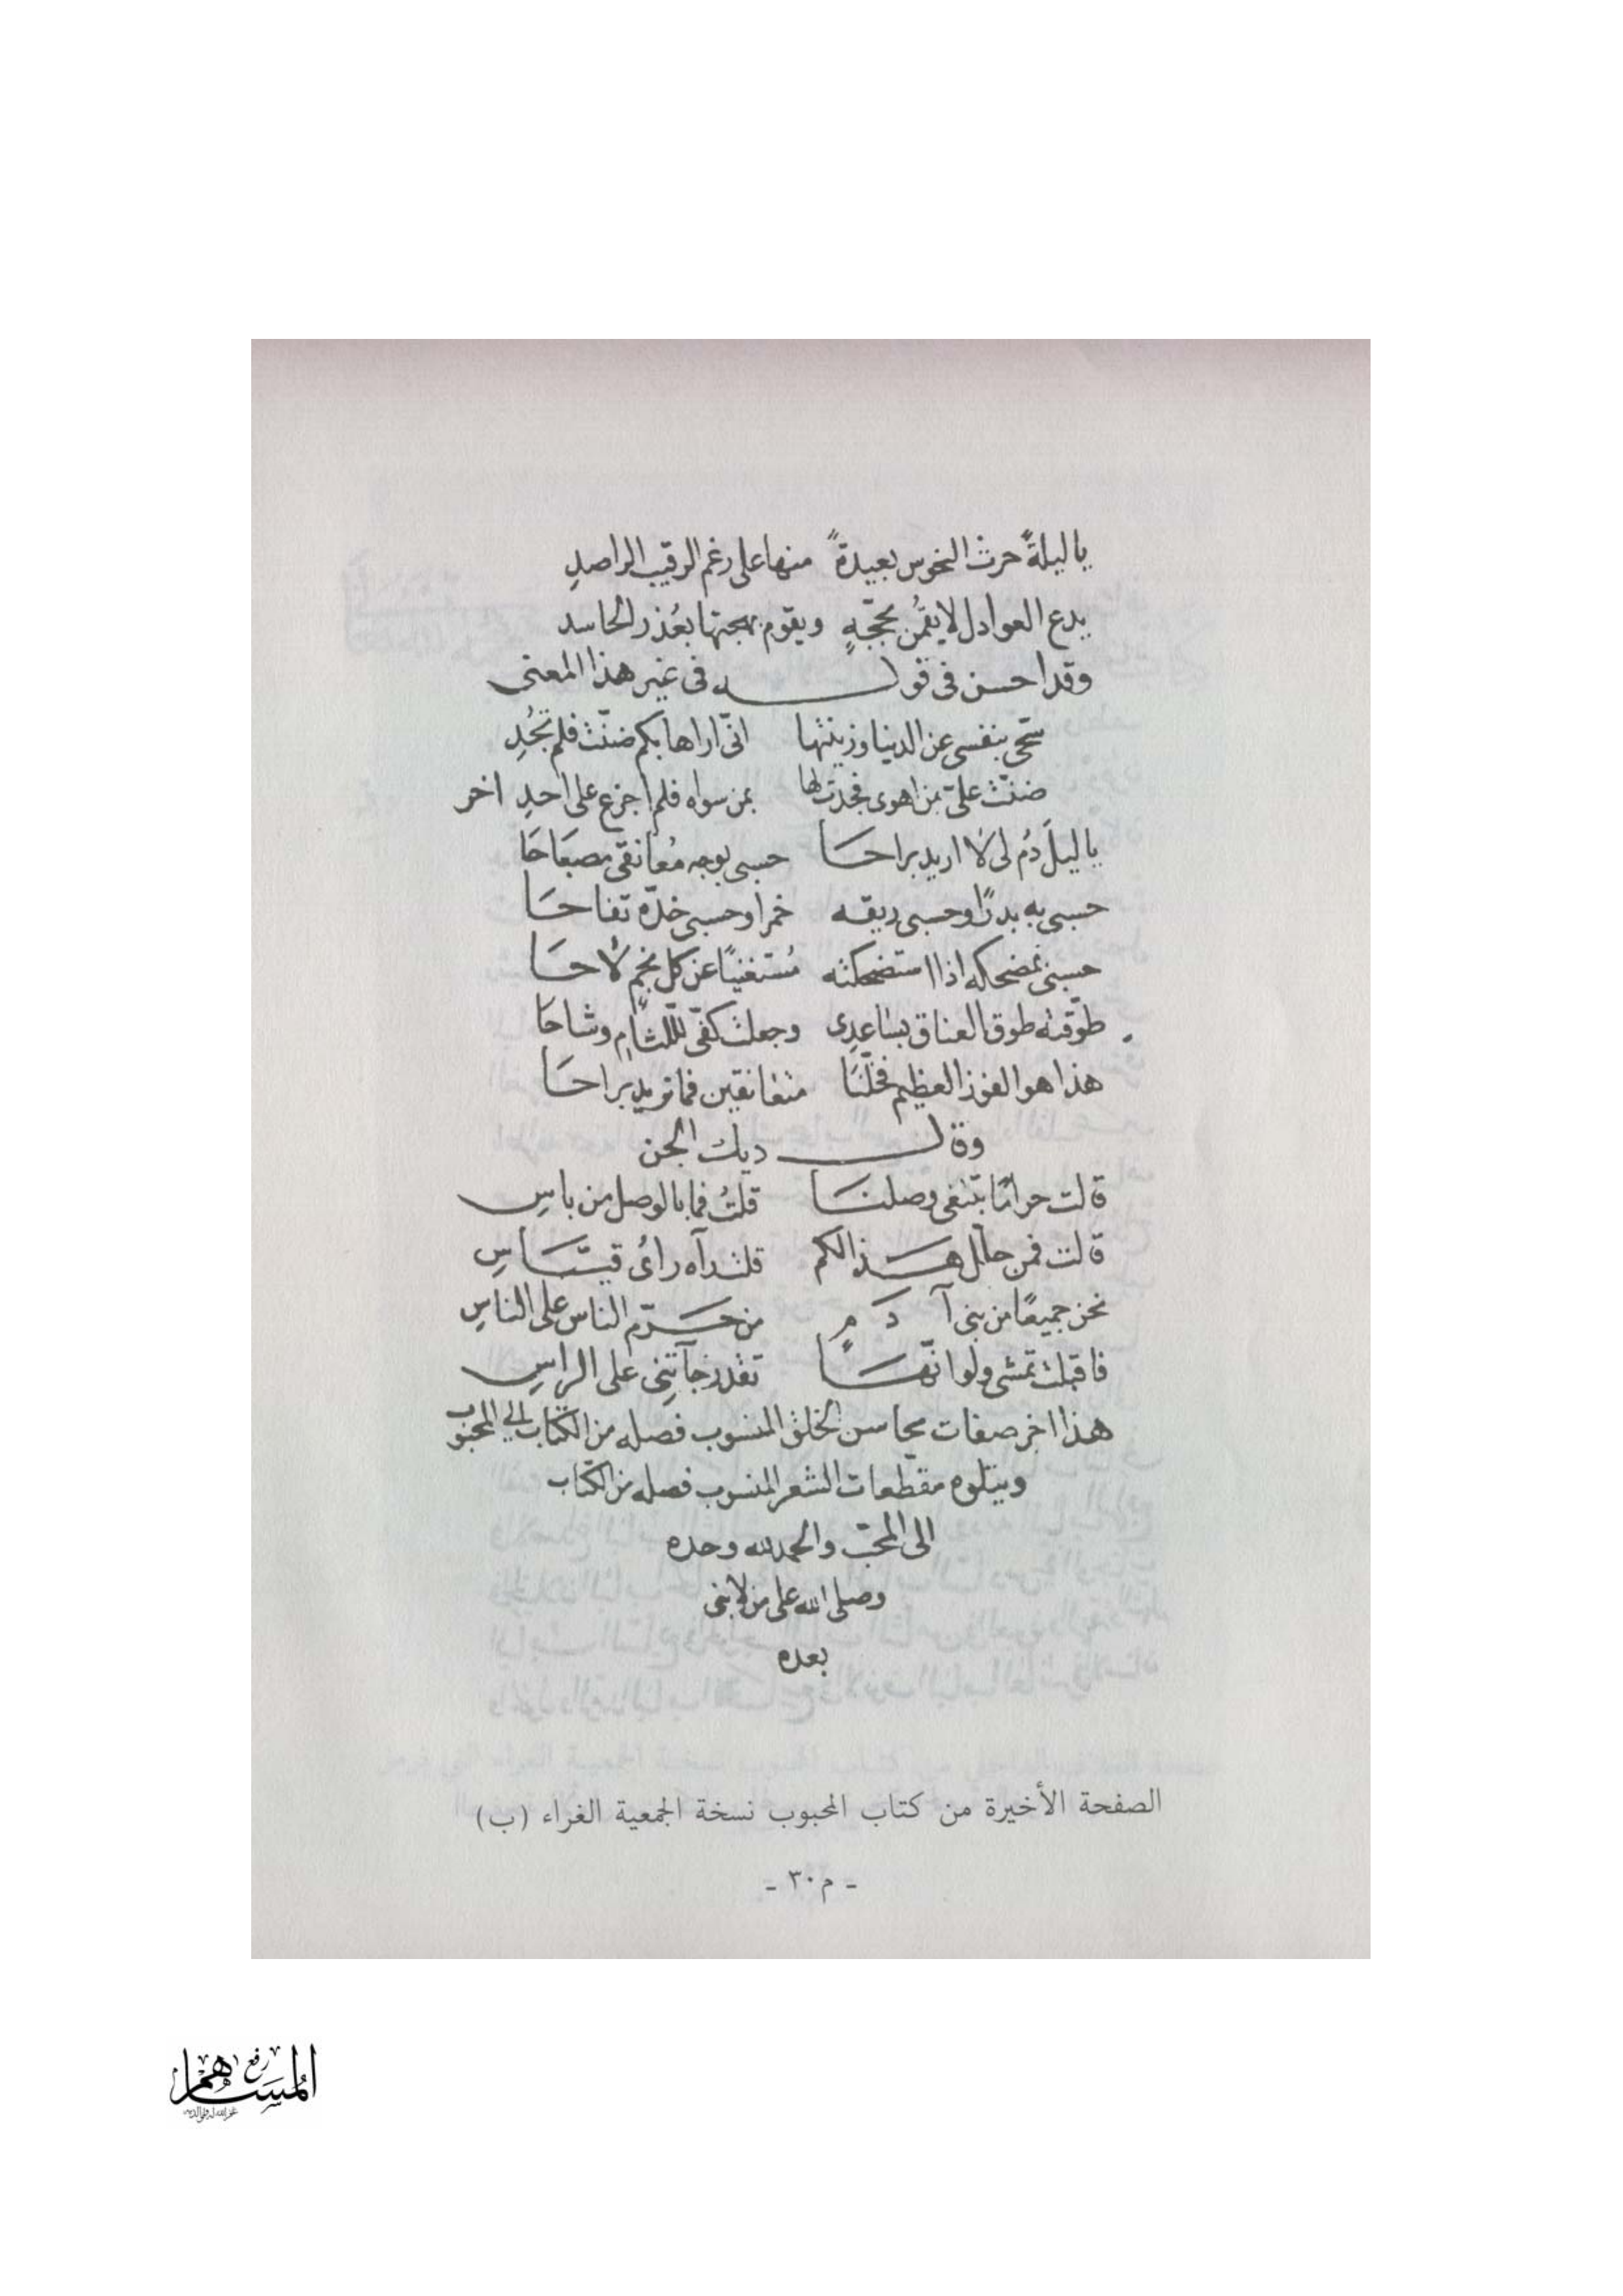 يا ليلةً حرث النحوس بعيدةً منها على رغم الرقيب الراصدِ
يدع العوادل لا يقمن بحجّةٍ ويقوم بهجتها بعُذر الحاسد
وقد احسن فى قوله فى غير هذا المعنى
سخّى بنفسى عن الدنيا وزينتها انّى اراها بكم ضنّت فلم تجُدِ
ضنّت علىّ بمن اهوى فجدت لها بمن سواه فلم اجزع على احدِ اخر
يا ليلَ دُم لى لا اريد براحَا حسبى بوجه مُعانقى مصباحَا
حسبى به بدرًا وحسبى ريقه خمرا وحسبى خدّه تفاحَا
حسبى بمضحكه اذا استضحكته مُستغنيًا عن كل نجمٍ لاحَا
طوّقته طوق العناق بساعدِى وجعلت كفّى للّثامِ وشاحَا
هذا هو الفوز العظيم فخلّنَا متعانقين فما نريد براحَا
وقال ديك الجن
قالت حرامًا تبتغى وصلنَا قلتُ فما بالوصل من باسِ
قالت فمن حلّل هذا لكم قلت رآه رائُ قيّاسِ
نحن جميعًا من بنى آدمٍ من حرّم الناس على الناسِ
فاقبلت تمشى ولو انّهَا تقدر جآتنِى على الراسِ
هذا اخر صفات محاسن الخلق المنسوب فصله من الكتاب إلي المحبوب
ويتلوه مقطّعات الشعر المنسوب فصله من الكتاب
الى المحبّ والحمد لله وحده
وصلى الله على من لا نبى
بعده
الصفحة الأخيرة من كتاب المحبوب نسخة الجمعية الغراء (ب)
- م٣٠ -
رفع
المساهم